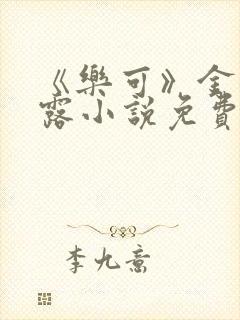 《樂可》金
露小說免費
李九意